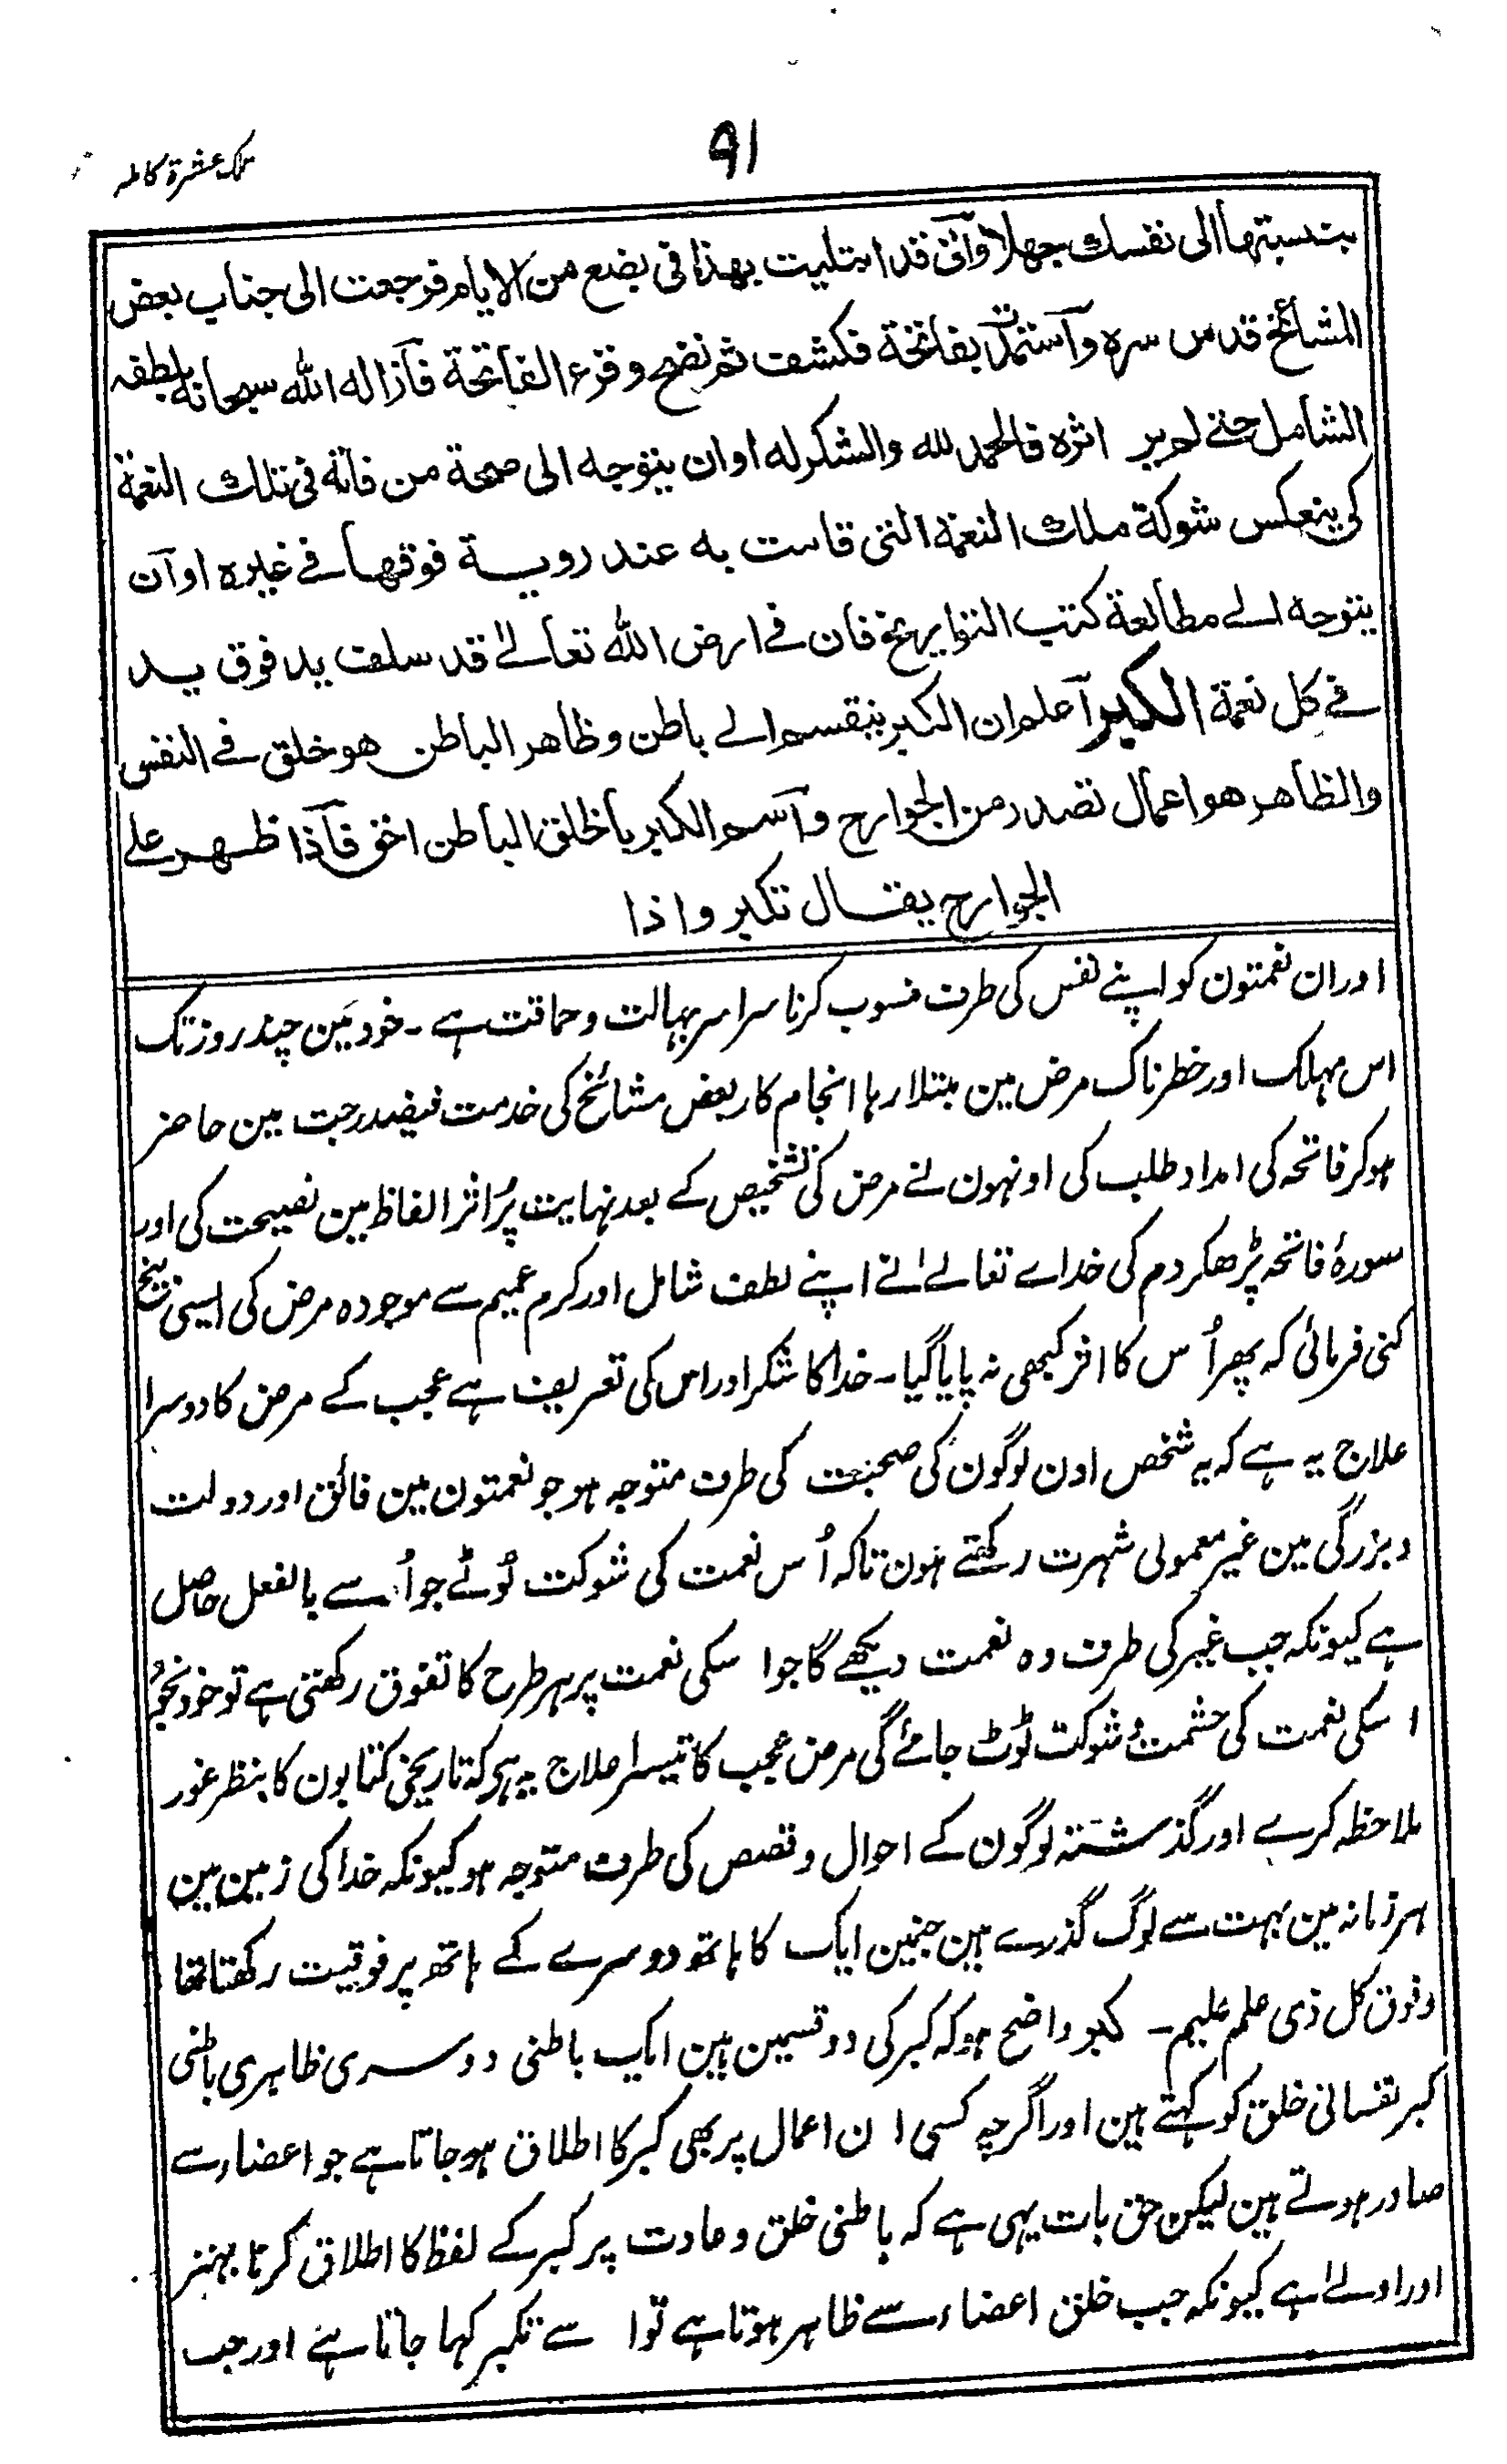 ۹۱
تلک عشرۃ کاملہ
بنسبتها الى نفسك جهلا وآنى قد ابتليت بهذا فى بضع من الايام فرجعت الى جناب بعض
المشائخ قدس سره وآستمدته بفاتحة فكشف ثم نضح وقرء الفاتحة فآزاله الله سبحانه بلطفه
الشامل حتے لم ير اثره فالحمد لله والشكر له او ان يتوجه الى صحبة من فاته فى تلك النعمة
كى ينعكس شوكة ملك النعمة التى قامت به عند روية فوقها فے غيره او آن
يتوجه الے مطالعة كتب التواريخ فان فے ارض الله تعالےٰ قد سلف يد فوق يد
فے كل نعمة الكبر آعلم ان الكبر ينقسم الے باطن وظاهر الباطن هو خلق فے النفس
والظاهر هو اعمال تصدر من الجوارح وآسم الكبر بالخلق الباطن احق فآذا ظهر علے
الجوارح يقال تكبر واذا
اور ان نعمتون کو اپنے نفس کی طرف منسوب کرنا سراسر جہالت و حماقت ہے ۔ خود مَین چند روز تک
اس مہلک اور خطرناک مرض مین مبتلا رہا انجام کار بعض مشائخ کی خدمت فیضدرجت مین حاضر
ہوکر فاتحہ کی امداد طلب کی اونہون نے مرض کی تشخیص کے بعد نہایت پُر اثر الفاظ مین نصیحت کی اور
سورۂ فاتحہ پڑھکر دم کی خداے تعالےٰ نے اپنے لطف شامل اور کرم عمیم سے موجودہ مرض کی ایسی بیخ
کنی فرمائی کہ پھر اُس کا اثر کبھی نہ پایا گیا ۔ خدا کا شکر اور اس کی تعریف ہے عجب کے مرض کا دوسرا
علاج یہ ہے کہ یہ شخص اون لوگون کی صحبت کی طرف متوجہ ہو جو نعمتون مین فائق اور دولت
و بزرگی مین غیر معمولی شہرت رکھتے ہون تاکہ اُس نعمت کی شوکت ٹوٹے جو اُسے بالفعل حاصل
ہے کیونکہ جب غیر کی طرف وہ نعمت دیکھے گا جو اسکی نعمت پر ہر طرح کا تفوق رکھتی ہے تو خود بخود
اسکی نعمت کی حشمت و شوکت ٹوٹ جائے گی مرض عُجب کا تیسرا علاج یہ ہی کہ تاریخی کتابون کا بنظر غور
ملاحظہ کرے اور گذشتہ لوگون کے احوال و قصص کی طرف متوجہ ہو کیونکہ خدا کی زمین مین
ہر زمانہ مین بہت سے لوگ گذرے ہین جنمین ایک کا ہاتھ دوسرے کے ہاتھ پر فوقیت رکھتا تھا
وفوق کل ذی علم علیم ۔ کبر واضح ہو کہ کبر کی دو قسمین ہین ایک باطنی دوسری ظاہری باطنی
کبر نفسانی خلق کو کہتے ہین اور اگرچہ کسی ان اعمال پر بھی کبر کا اطلاق ہو جاتا ہے جو اعضاء سے
صادر ہوتے ہین لیکن حق بات یہی ہے کہ باطنی خلق و عادت پر کبر کے لفظ کا اطلاق کرنا بہتر
اور اولےٰ ہے کیونکہ جب خلق اعضاء سے ظاہر ہوتا ہے تو اسے تکبر کہا جاتا ہے اور جب